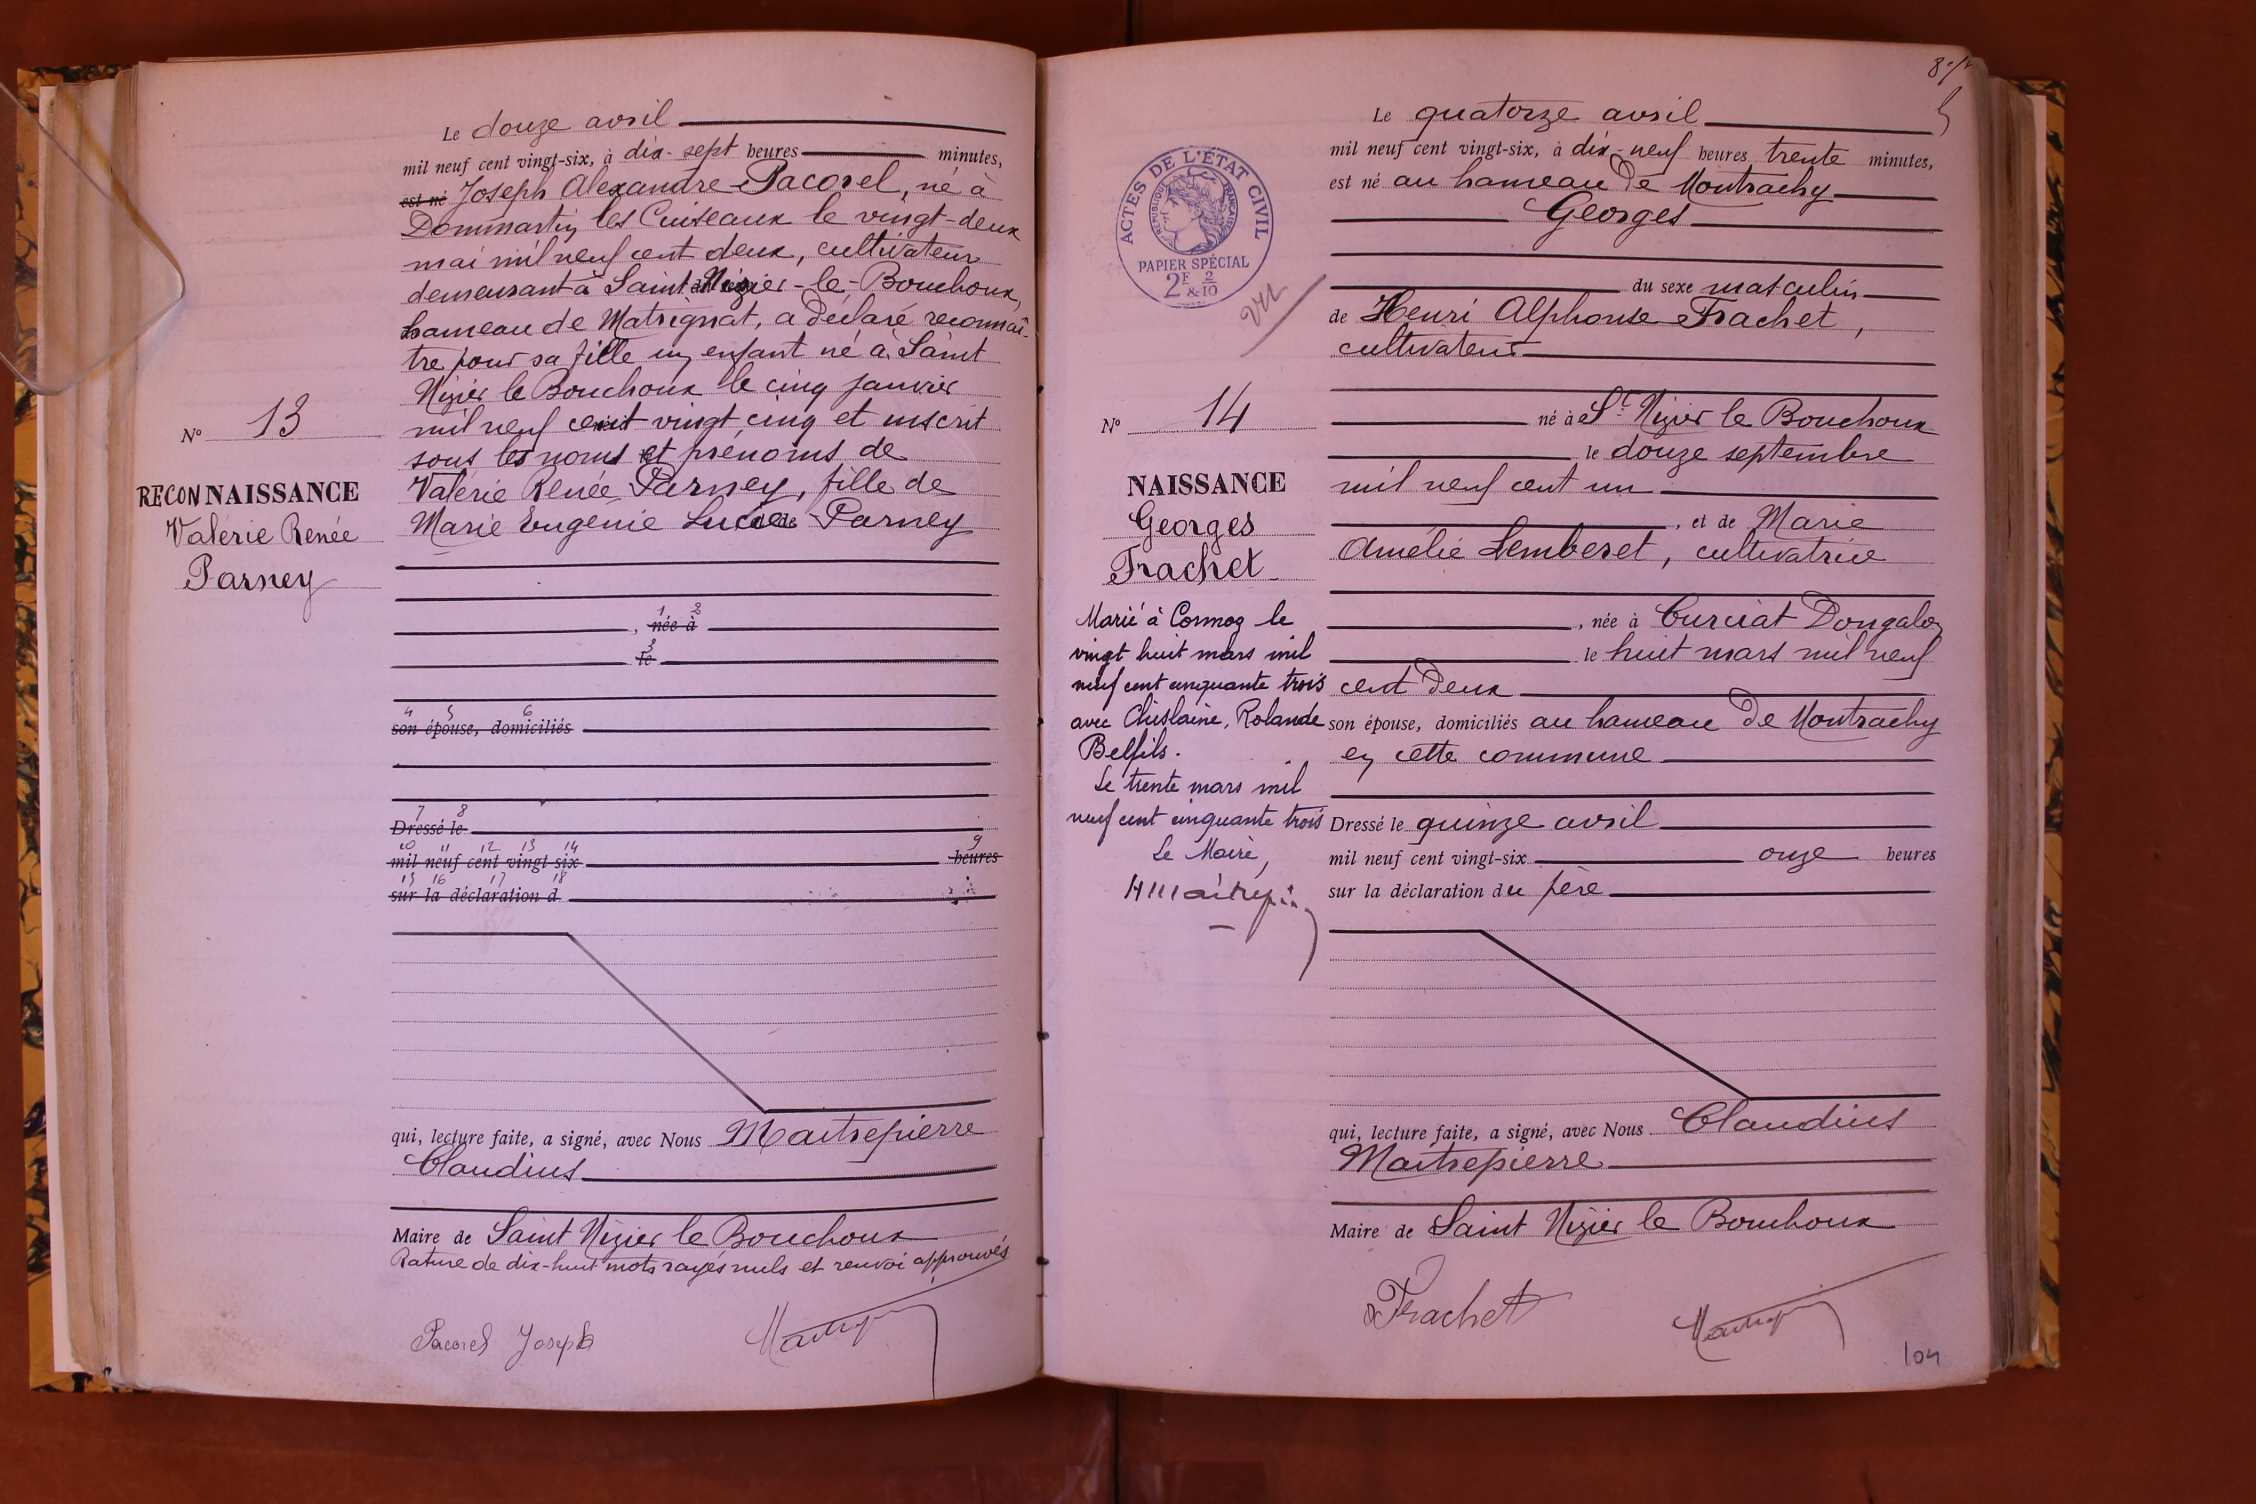 Le douze avril
mil neuf cent vingt-six, à dix-sept heures minutes,
est né Joseph Alexandre Pacorel, né à
Dommartin les Cuiseaux le vingt-deux
mai mil neuf cent deux, cultivateur
demeurant à Saint Nizier-le-Bouchoux,
hameau de Matrignat, a déclaré reconnaî-
tre pour sa fille un enfant né à Saint
Nizier le Bouchoux le cinq janvier
mil neuf cent vingt cinq et inscrit
sous les noms et prénoms de
Valérie Renée Parney, fille de
Marie Eugénie Lucie Parney
N° 13
RECONNAISSANCE
Valérie Renée
Parney
1 2
, née à
3
le
4 5 6
son épouse, domiciliés
7 8
Dressé le
10 11 12 13 14 9
mil neuf cent vingt-six heures
15 16 17 18
sur la déclaration d
qui, lecture faite, a signé, avec Nous Maitrepierre
Claudius
Maire de Saint Nizier le Bouchoux
Rature de dix-huit mots rayés nuls et renvoi approuvés
Pacorel Joseph
Le quatorze avril
mil neuf cent vingt-six, à dix-neuf heures trente minutes,
est né au hameau de Montrachy
Georges
du sexe masculin
de Henri Alphonse Frachet,
cultivateur
né à St Nizier le Bouchoux
le douze septembre
mil neuf cent un
, et de Marie
Amélie Lemberet, cultivatrice
, née à Curciat Dongalon
le huit mars mil neuf
cent deux
son épouse, domiciliés au hameau de Montrachy
en cette commune
Dressé le quinze avril
mil neuf cent vingt-six onze heures
sur la déclaration du père
qui, lecture faite, a signé, avec Nous Claudius
Maitrepierre
Maire de Saint Nizier le Bouchoux
Frachet
ACTES DE L'ÉTAT CIVIL
RÉPUBLIQUE FRANÇAISE
PAPIER SPÉCIAL
2F & 2/10
N° 14
NAISSANCE
Georges
Frachet
Marié à Cormoz le
vingt huit mars mil
neuf cent cinquante trois
avec Ghislaine, Rolande
Belfils.
Le trente mars mil
neuf cent cinquante trois
Le Maire,
104